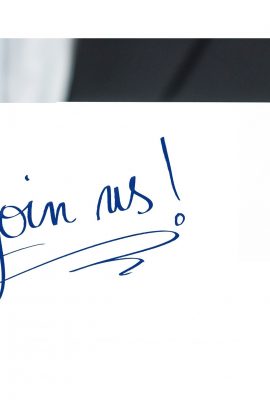 join us!